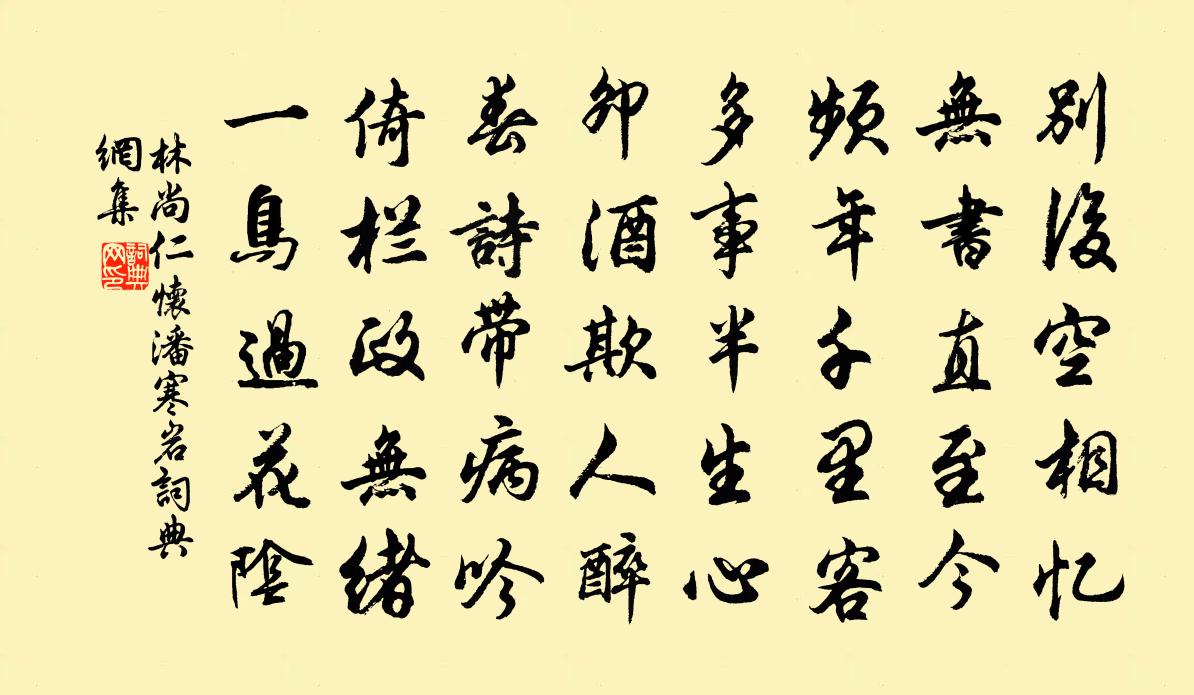 別後空相忆
無書直至今
頻年千里客
多事半生心
卯酒欺人醉
春詩带病吟
倚栏政無緒
一鳥過花陰
林尚仁懷潘寒岩詞典
網集
詞典
网印